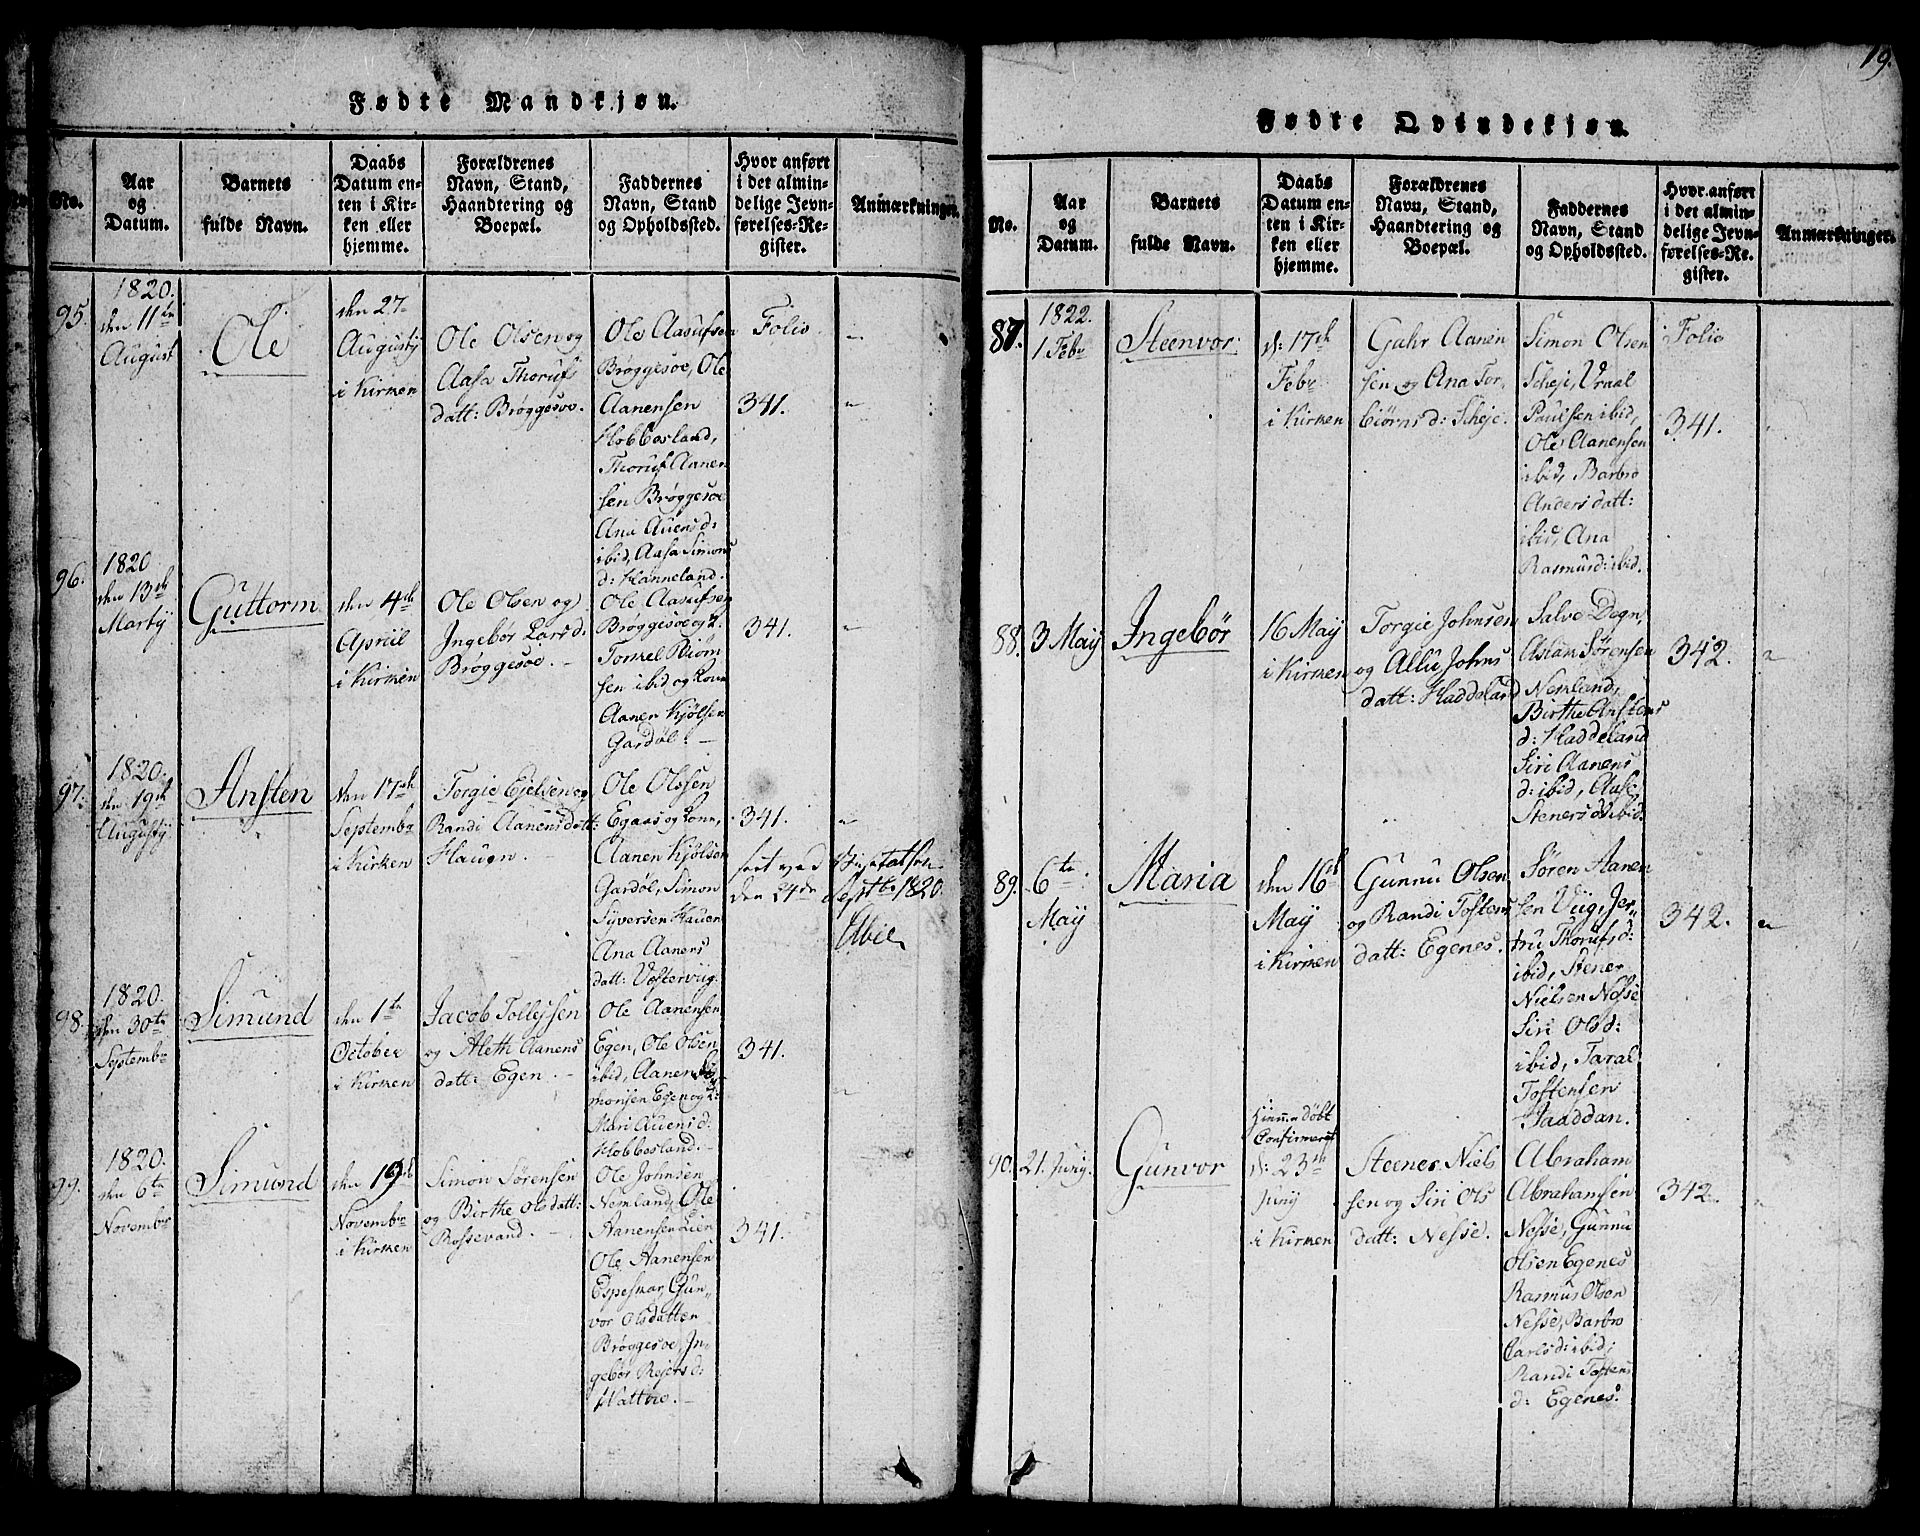 Fødte Mandkjøn.
No.
Aar
og
Datum.
Barnets
fulde Navn.
Daabs
Datum en-
ten i Kir-
ken eller
hjemme.
Forældrenes
Navn, Stand,
Haandtering og
Boepæl.
Faddernes
Navn, Stand
og Opholdssted.
Hvor anført
i det almin-
delige Jevn-
førelses-Re-
gister.
Anmærkninger.
95.
1820.
den 11te
August
Ole
den 27
Augusty
i Kirken
Ole Olsen og
Aasa Thorufs
datt: Brøggesoe.
Ole Aasufsen
Brøggesoe, Ole
Aanensen
Hobbesland,
Thoruf Aanen
sen Brøggesoe
Ana Auensd:
ibid, Aasa Simons
d: Hanneland.
Folio
341.
96.
1820
den 13de
Marty
Guttorm
den 4de
Apriil
i Kirken
Ole Olsen og
Ingebør Larsd:
Brøggesoe. -
Ole Aasufsen
Brøggesoe og K.
Tomkel Biøm
sen ibid og Kone
Aanen Kjølsen
Gardøl. -
341.
97.
1820.
den 19de
Augusty
Ansten
den 17de
Septembr
i Kirken
Torgie Ejelsen og
Randi Aanensdatt:
Hauen. -
Ole Olssen
Egaas og Kone,
Aanen Kjølsen
Gardøl, Simon
Syversen Hauen
Ana Aanens
datt: Vestervug.
341.
sort ved
den 24de Septbr 1820.
98.
1820.
den 30te
Septembr
Simund
den 1te
October
i Kirken
Jacob Tollejsen
og Aleth Aanens
datt: Egen. -
Ole Aanensen
Egen, Ole Olsen
ibid, Aanen Si-
monsen Egen og K:
Mari Auensd:
Hobbesland. -
341.
99.
1820.
den 6te
Novembr
Simund
den 19de
Novembr
i Kirken
Simon Sørensen
og Birthe Olsdatt:
Rossevand. -
Ole Johnsen
Nemland, Ole
Aanensen Lien
Ole Aanensen
Espeskar, Gun-
vor Olsdatten
Brøggesoe, In-
gebør Rejersd:
Hattrie. -
341.
19.
Fødte Qvindekjøn.
No.
Aar
og
Datum.
Barnets
fulde Navn.
Daabs
Datum en-
ten i Kir-
ken eller
hjemme.
Forældrenes
Navn, Stand,
Haandtering og
Boepæl.
Faddernes
Navn, Stand
og Opholdssted.
Hvor anført
i det almin-
delige Jevn-
førelses-Re-
gister.
Anmærkninger.
87.
1822.
1 Febr
Steenvor
d: 17de
Febr
i Kirken
Gahr Aanen
sen og Ana Tor-
biørnsd: Scheje.
Simon Olsen
Scheje, Vraal
Paulsen ibid,
Ole Aanensen
ibid, Barbro
Andersdatt:
ibid, Ana
Rasmusd: ibid.
Folio
341.
88.
3 May
Ingebør
16 May
i Kirken
Torgie Johnsen
og Allu Johns
datt: Haddeland
Salve Degn,
Aslak Sørensen
Nemland,
Birthe Anstens
d: Haddeland
Siri Aanens
d: ibid, Aase
Stenersd: ibid.
342.
89.
6te
May
Maria
den 16de
May
i Kirken
Gunnu Olsen
og Randi Tostens
datt: Egenes.
Søren Aanen
sen Viig, Jer-
tru Thorufsd:
ibid, Stener
Nielsen Nesse
Siri Olsd:
ibid, Taral
Tostensen
Haaddan.
342.
90.
21. Juny
Gunvor
Hiemedøbt
Confirmeret
d: 23de
Juny
i Kirken
Steener Niels
sen og Siri Ols
datt: Nesse.
Abraham
Abrahamsen
Nesse, Gunnu
Olsen Egenes
Rasmus Olsen
Nesse, Barbro
Carlsd: ibid;
Randi Tostens
d: Egenes.
342.